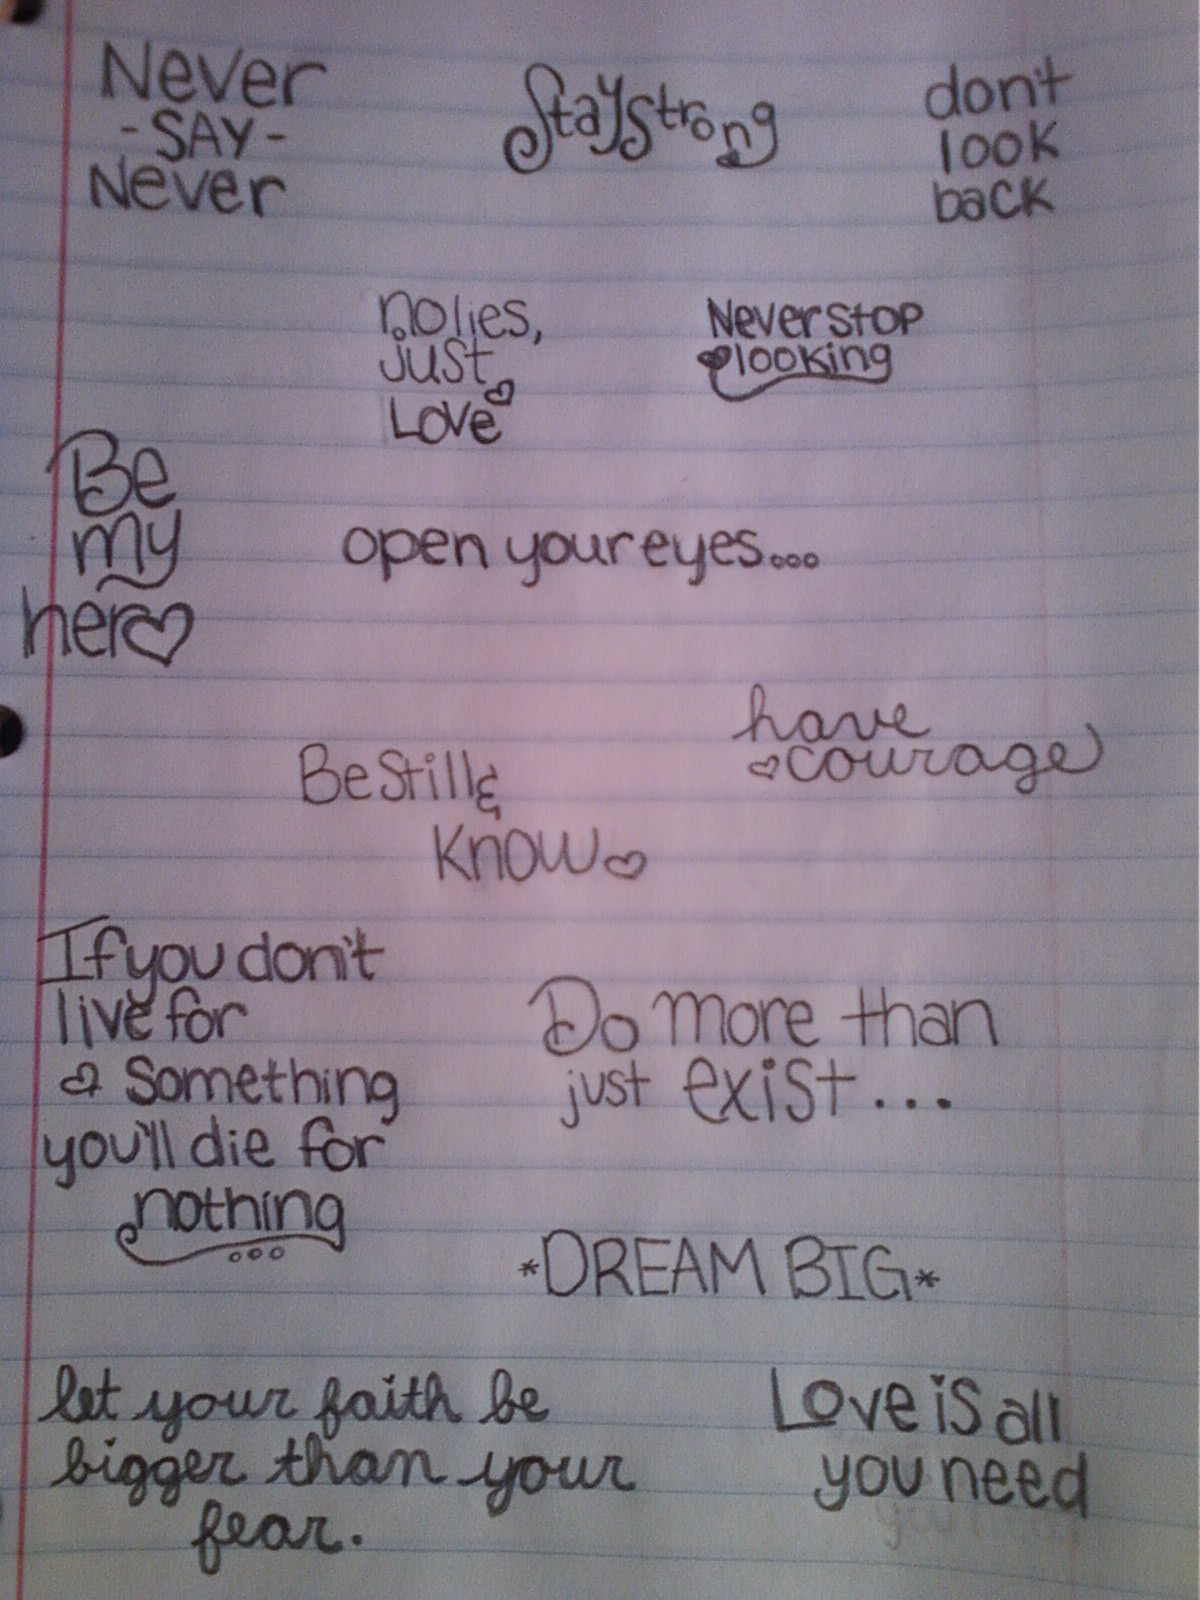 Never
-SAY-
Never
Stay strong
don't
look
back
no lies,
just
Love
Never stop
looking
Be
my
her♡
open your eyes...
have
courage
Be Still &
Know
If you don't
live for
something
you'll die for
nothing
...
Do more than
just exist...
*DREAM BIG*
let your faith be
bigger than your
fear.
Love is all
you need